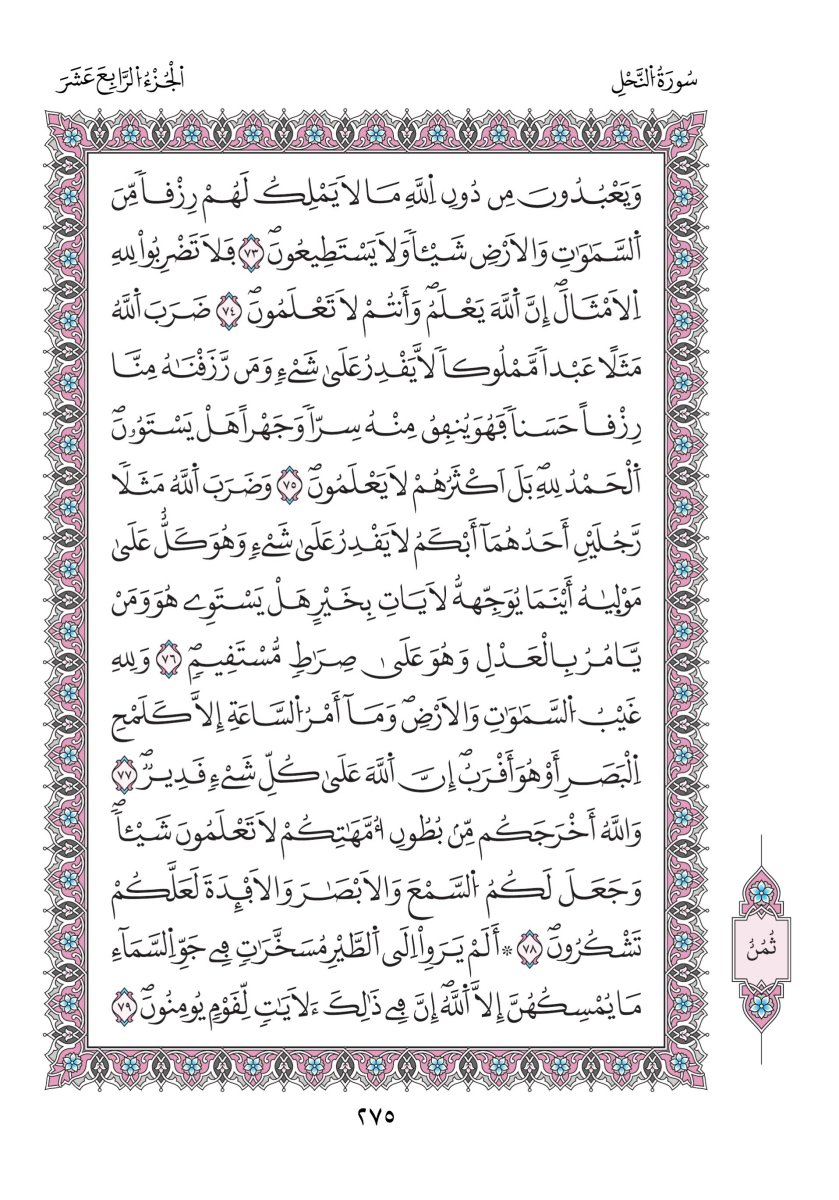 سُورَةُ اُلنَّحْلِ
اَلْجُزْءُ اُلرَّابِعَ عَشَرَ
وَيَعْبُدُونَ مِن دُونِ اِللَّهِ مَا لَا يَمْلِكُ لَهُمْ رِزْقاً مِّنَ
اَلسَّمَٰوَٰتِ وَالَارْضِ شَيْـاً وَلَا يَسْتَطِيعُونَۖ ٧٣ فَلَا تَضْرِبُواْ لِلهِ
اِلَامْثَالَۖ إِنَّ اَللَّهَ يَعْلَمُۖ وَأَنتُمْ لَا تَعْلَمُونَۖ ٧٤ ضَرَبَ اَللَّهُ
مَثَلًا عَبْداً مَّمْلُوكاً لَّا يَقْدِرُ عَلَىٰ شَيْءٖ وَمَن رَّزَقْنَٰهُ مِنَّا
رِزْقاً حَسَناً فَهُوَ يُنفِقُ مِنْهُ سِرّاً وَجَهْراً هَلْ يَسْتَوُۥنَۖ
اَلْحَمْدُ لِلهِۖ بَلَ اَكْثَرُهُمْ لَا يَعْلَمُونَۖ ٧٥ وَضَرَبَ اَللَّهُ مَثَلًا
رَّجُلَيْنِ أَحَدُهُمَآ أَبْكَمُ لَا يَقْدِرُ عَلَىٰ شَيْءٖ وَهُوَ كَلٌّ عَلَىٰ
مَوْلِيٰهُ أَيْنَمَا يُوَجِّههُّ لَا يَاتِ بِخَيْرٍ هَلْ يَسْتَوِے هُوَ وَمَنْ
يَّامُرُ بِالْعَدْلِ وَهُوَ عَلَىٰ صِرَٰطٖ مُّسْتَقِيمٖۖ ٧٦ وَلِلهِ
غَيْبُ اُلسَّمَٰوَٰتِ وَالَارْضِۖ وَمَآ أَمْرُ اُلسَّاعَةِ إِلَّا كَلَمْحِ
اِلْبَصَرِ أَوْ هُوَ أَقْرَبُۖ إِنَّ اَللَّهَ عَلَىٰ كُلِّ شَيْءٖ قَدِيرٌۖ ٧٧
وَاللَّهُ أَخْرَجَكُم مِّنۢ بُطُونِ أُمَّهَٰتِكُمْ لَا تَعْلَمُونَ شَيْـاًۖ
وَجَعَلَ لَكُمُ اُلسَّمْعَ وَالَابْصَٰرَ وَالَافْـِٕدَةَ لَعَلَّكُمْ
تَشْكُرُونَۖ ٧٨ ۞ أَلَمْ يَرَوِاْ اِلَى اَلطَّيْرِ مُسَخَّرَٰتٖ فِے جَوِّ اِلسَّمَآءِ
مَا يُمْسِكُهُنَّ إِلَّا اَللَّهُۖ إِنَّ فِے ذَٰلِكَ ءَلَايَٰتٖ لِّقَوْمٖ يُومِنُونَۖ ٧٩
ثُمُنُ
٢٧٥